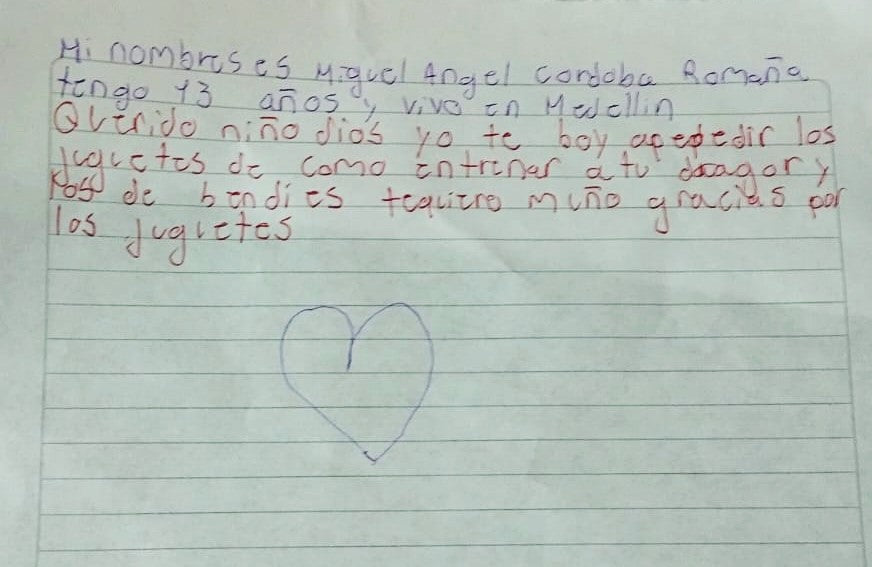 Mi nombres es Miguel Angel Cordoba Romaña
tengo 13 años y vivo en Medellin
Querido niño dios yo te boy apepedir los
juguetes de como entrenar a tu dragor y
los de bendies tequiero muño gracias por
los juguetes